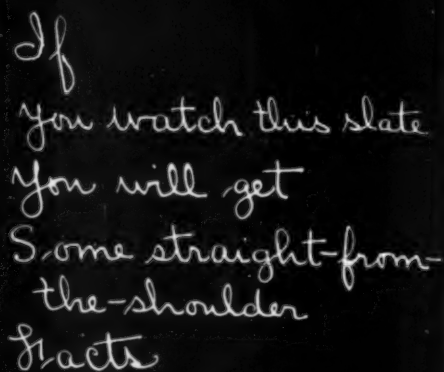 If
you watch this slate
you will get
Some straight-from-
the-shoulder
Facts